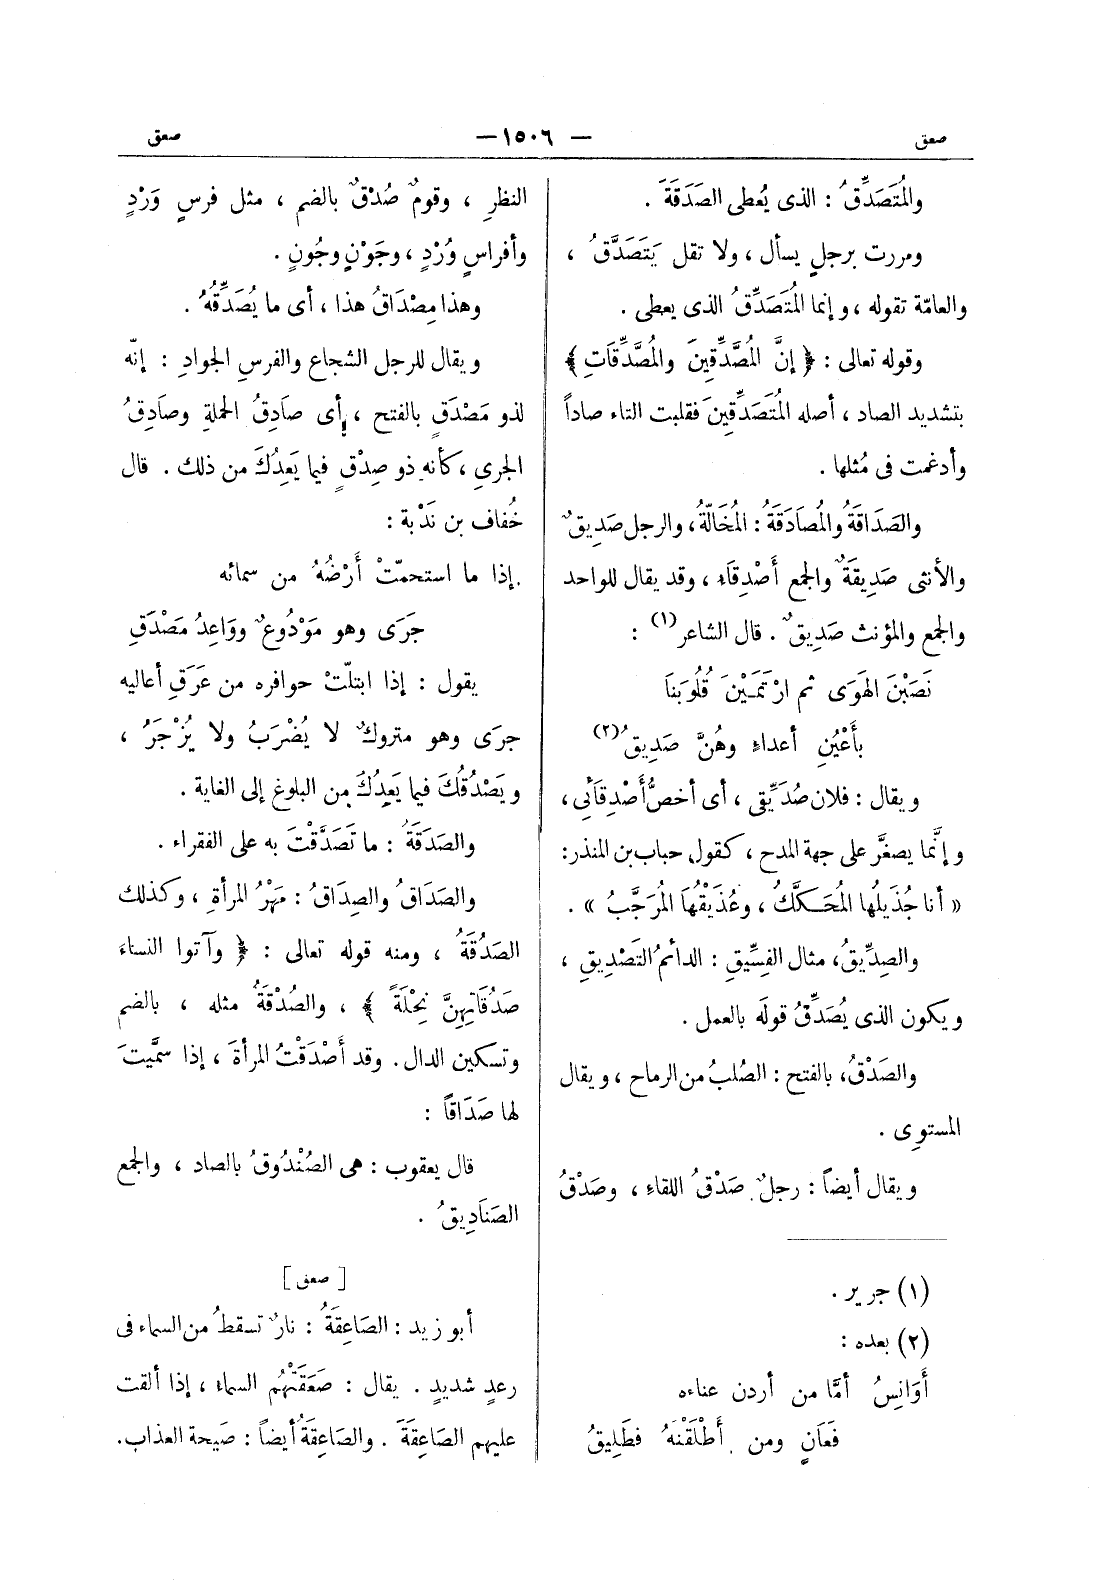 صعق — ١٥٠٦ — صعق
والمُتَصَدِّقُ : الذى يُعطى الصَدَقَةَ .
ومررت برجلٍ يسأل ، ولا تقل يَتَصَدَّقُ ،
والعامّة تقوله ، وإنما المُتَصَدِّقُ الذى يعطى .
وقوله تعالى : ﴿ إنَّ المُصَّدِّقِينَ والمُصَّدِّقَاتِ ﴾
بتشديد الصاد ، أصله المُتَصَدِّقِينَ فقلبت التاء صاداً
وأدغمت فى مُثلها .
والصَدَاقَةُ والمُصَادَقَةُ : المُخَالَّةُ، والرجل صَدِيقٌ
والأنثى صَدِيقَةٌ والجمع أَصْدِقَاء ، وقد يقال للواحد
والجمع والمؤنث صَدِيقٌ . قال الشاعر (١) :
نَصَبْنَ الهَوَى ثم ارْتَمَيْنَ قُلُوبَنَا
بأَعْيُنِ أعداءٍ وهُنَّ صَدِيقُ (٢)
ويقال : فلان صُدَيِّقِى ، أى أخصُّ أَصْدِقَائى ،
وإنَّما يصغَّر على جهة المدح ، كقول حباب بن المنذر :
« أنا جُذَيلُها المُحَكَّكُ ، وعُذَيْقُهَا المُرَجَّبُ » .
والصِدِّيقُ، مثال الفِسِّيقِ : الدائمُ التَصْدِيقِ ،
ويكون الذى يُصَدِّقُ قولَه بالعمل .
والصَدْقُ، بالفتح : الصُلبُ من الرماح ، ويقال
المستوِى .
ويقال أيضاً : رجلٌ صَدْقُ اللقاءِ ، وصَدْقُ
(١) جرير .
(٢) بعده :
أَوَانِسُ أمَّا من أردن عناءه
فَعَانٍ ومن أَطْلَقْنَهُ فطَلِيقُ
النظرِ ، وقومٌ صُدْقٌ بالضم ، مثل فرسٍ وَرْدٍ
وأفراسٍ وُرْدٍ ، وجَوْنٍ وجُونٍ .
وهذا مِصْدَاقُ هذا ، أى ما يُصَدِّقُهُ .
ويقال للرجل الشجاع والفرسِ الجوادِ : إنّه
لذو مَصْدَقٍ بالفتح ، أى صَادِقُ الحملةِ وصَادِقُ
الجرىِ ، كأنه ذو صِدْقٍ فيما يَعِدُكَ من ذلك . قال
خُفاف بن نَدْبة :
إذا ما استحمّتْ أَرْضُهُ من سمائه
جرَى وهو مَوْدُوعٌ ووَاعِدُ مَصْدَقِ
يقول : إذا ابتلّتْ حوافره من عَرَقِ أعاليه
جرَى وهو متروكٌ لا يُضْرَبُ ولا يُزْجَرُ ،
ويَصْدُقُكَ فيما يَعِدُكَ من البلوغ إلى الغاية .
والصَدَقَةُ : ما تَصَدَّقْتَ به على الفقراء .
والصَدَاقُ والصِدَاقُ : مَهْرُ المرأةِ ، وكذلك
الصَدُقَةُ ، ومنه قوله تعالى : ﴿ وآتوا النساءَ
صَدُقَاتِهِنَّ نِحْلَةً ﴾ ، والصُدْقَةُ مثله ، بالضم
وتسكين الدال. وقد أَصْدَقْتُ المرأةَ ، إذا سمَّيتَ
لها صَدَاقاً :
قال يعقوب : هى الصُنْدُوقُ بالصاد ، والجمع
الصَنَادِيقُ .
[ صعق ]
أبو زيد : الصَاعِقَةُ : نارٌ تسقطُ من السماء فى
رعدٍ شديدٍ . يقال : صَعَقَتْهُم السماء ، إذا ألقت
عليهم الصَاعِقَةَ . والصَاعِقَةُ أيضاً : صَيحة العذاب.